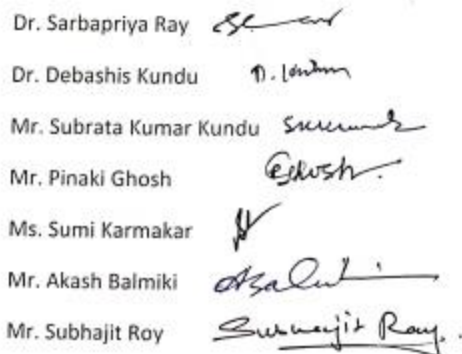 Dr. Sarbapriya Ray
Dr. Debashis Kundu D. Kundu
Mr. Subrata Kumar Kundu
Mr. Pinaki Ghosh Ghosh.
Ms. Sumi Karmakar
Mr. Akash Balmiki
Mr. Subhajit Roy Ray.